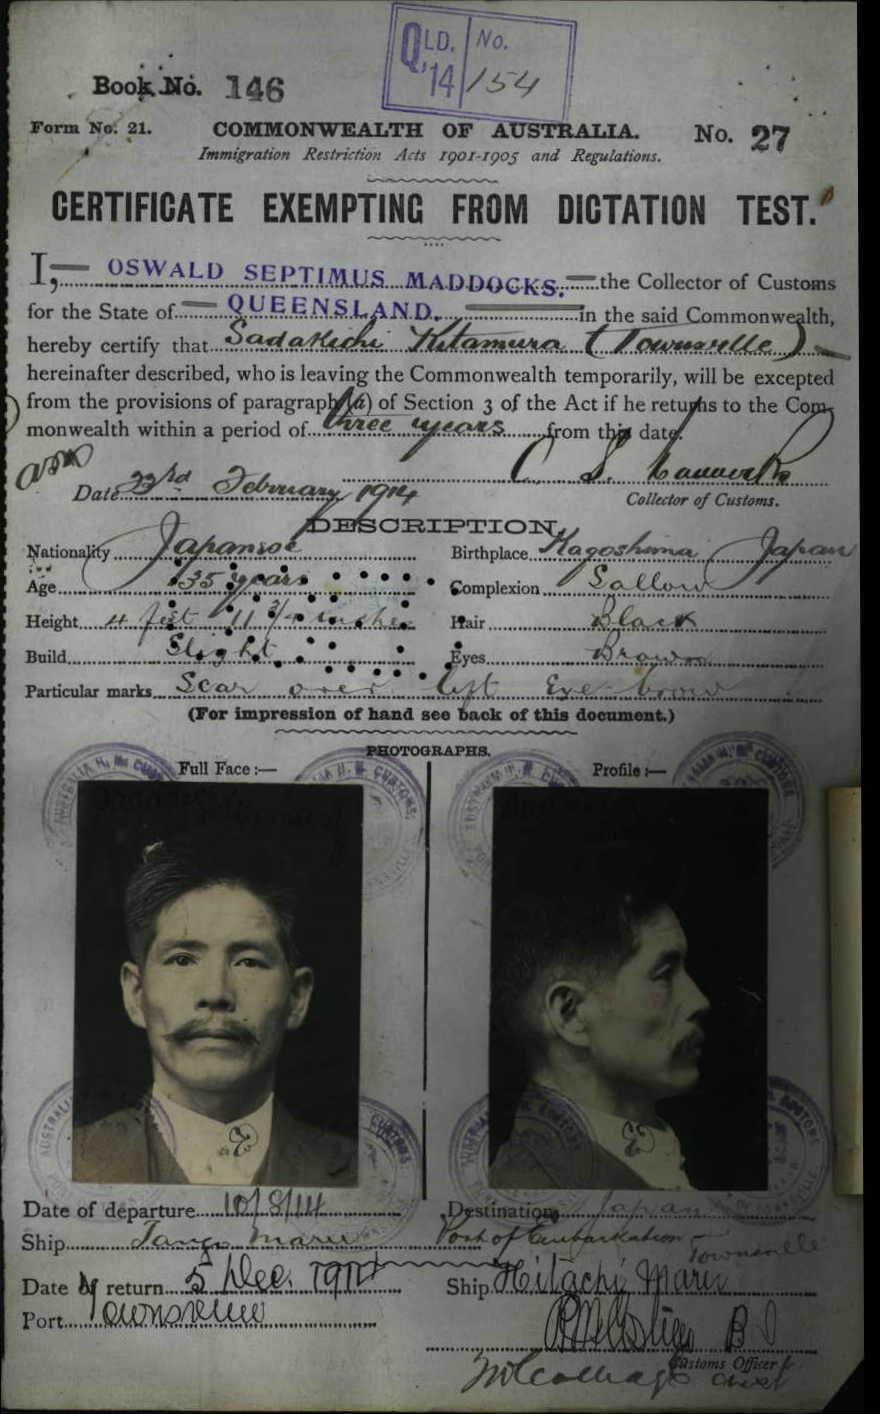 QLD. No.
'14 154
Book No. 146
Form No. 21. COMMONWEALTH OF AUSTRALIA. No. 27
Immigration Restriction Acts 1901-1905 and Regulations.
CERTIFICATE EXEMPTING FROM DICTATION TEST.
I, OSWALD SEPTIMUS MADDOCKS. the Collector of Customs
for the State of QUEENSLAND. in the said Commonwealth,
hereby certify that Sadakichi Kitamura (Townsville)
hereinafter described, who is leaving the Commonwealth temporarily, will be excepted
from the provisions of paragraph (a) of Section 3 of the Act if he returns to the Com-
monwealth within a period of three years from this date.
C. S.
Date 23rd February 1914 Collector of Customs.
DESCRIPTION.
Nationality Japanese Birthplace Kagoshima Japan
Age 35 years Complexion Sallow
Height 4 feet 11 3/4 inches Hair Black
Build Slight Eyes Brown
Particular marks Scar over left Eye-brow
(For impression of hand see back of this document.)
PHOTOGRAPHS.
Full Face :— Profile :—
Date of departure 10/8/14 Destination Japan
Ship Tango Maru Port of Embarkation Townsville
Date of return 5 Dec. Ship Hitachi Maru
Port Townsville
Customs Officer